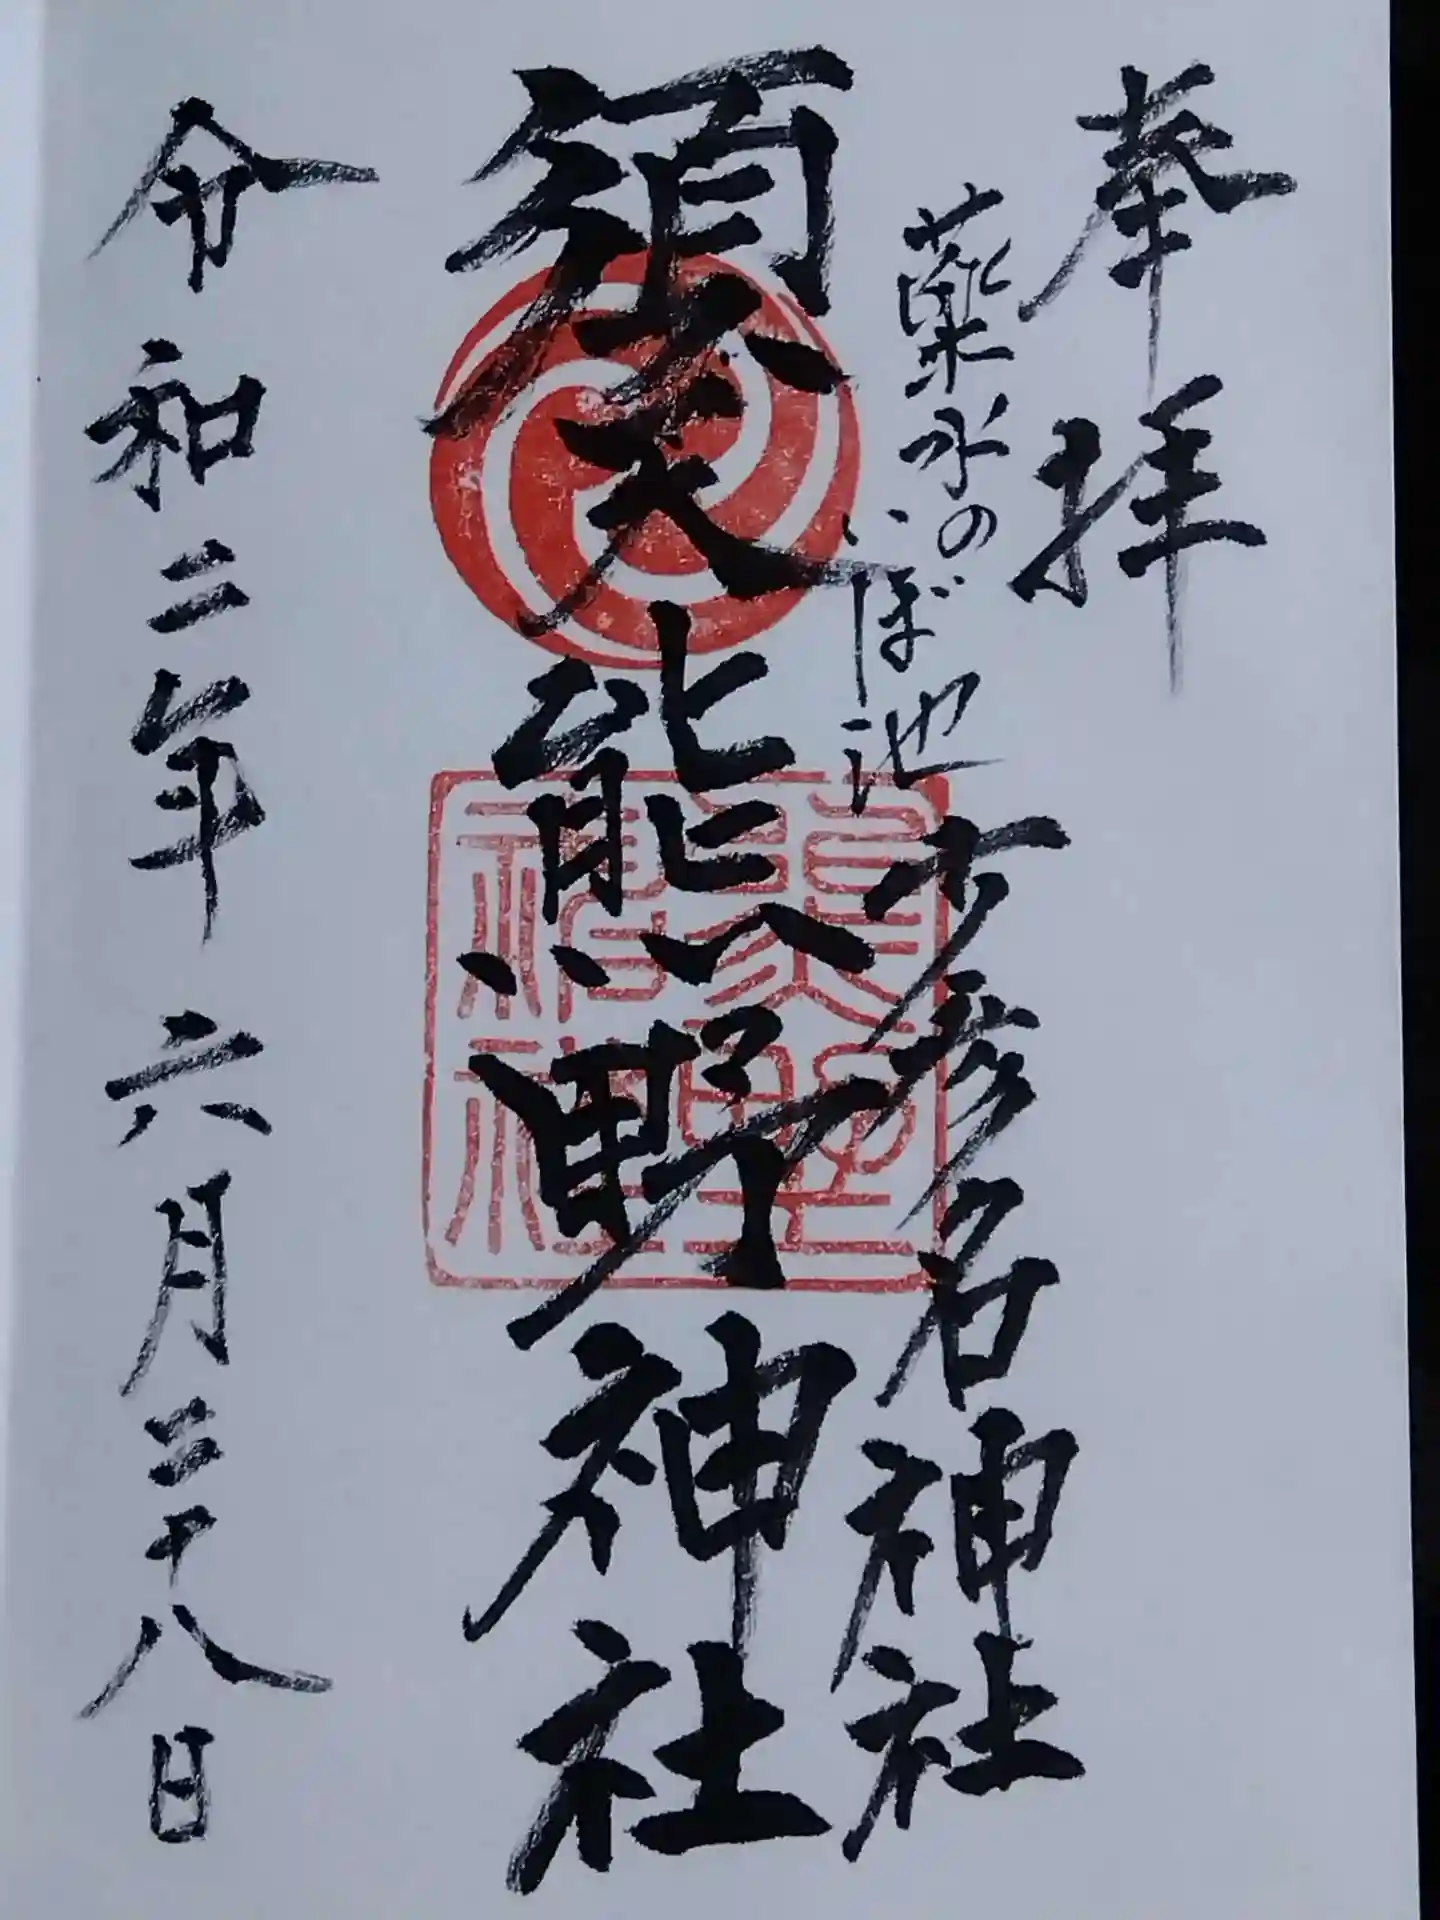 奉拝
薬水の
いぼ池
少彦名神社
須天熊野神社
令和二年六月二十八日